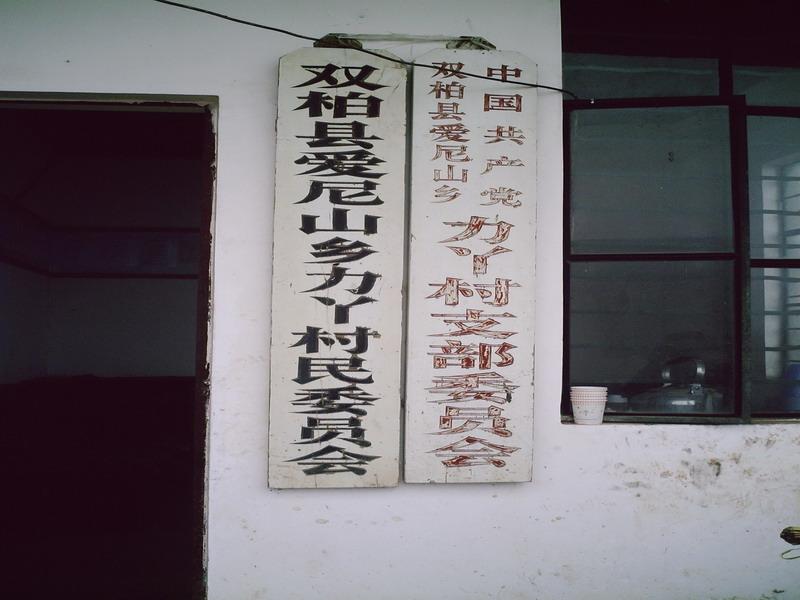 双柏县爱尼山乡力丫村民委员会
中国共产党
双柏县爱尼山乡
力丫村支部委员会